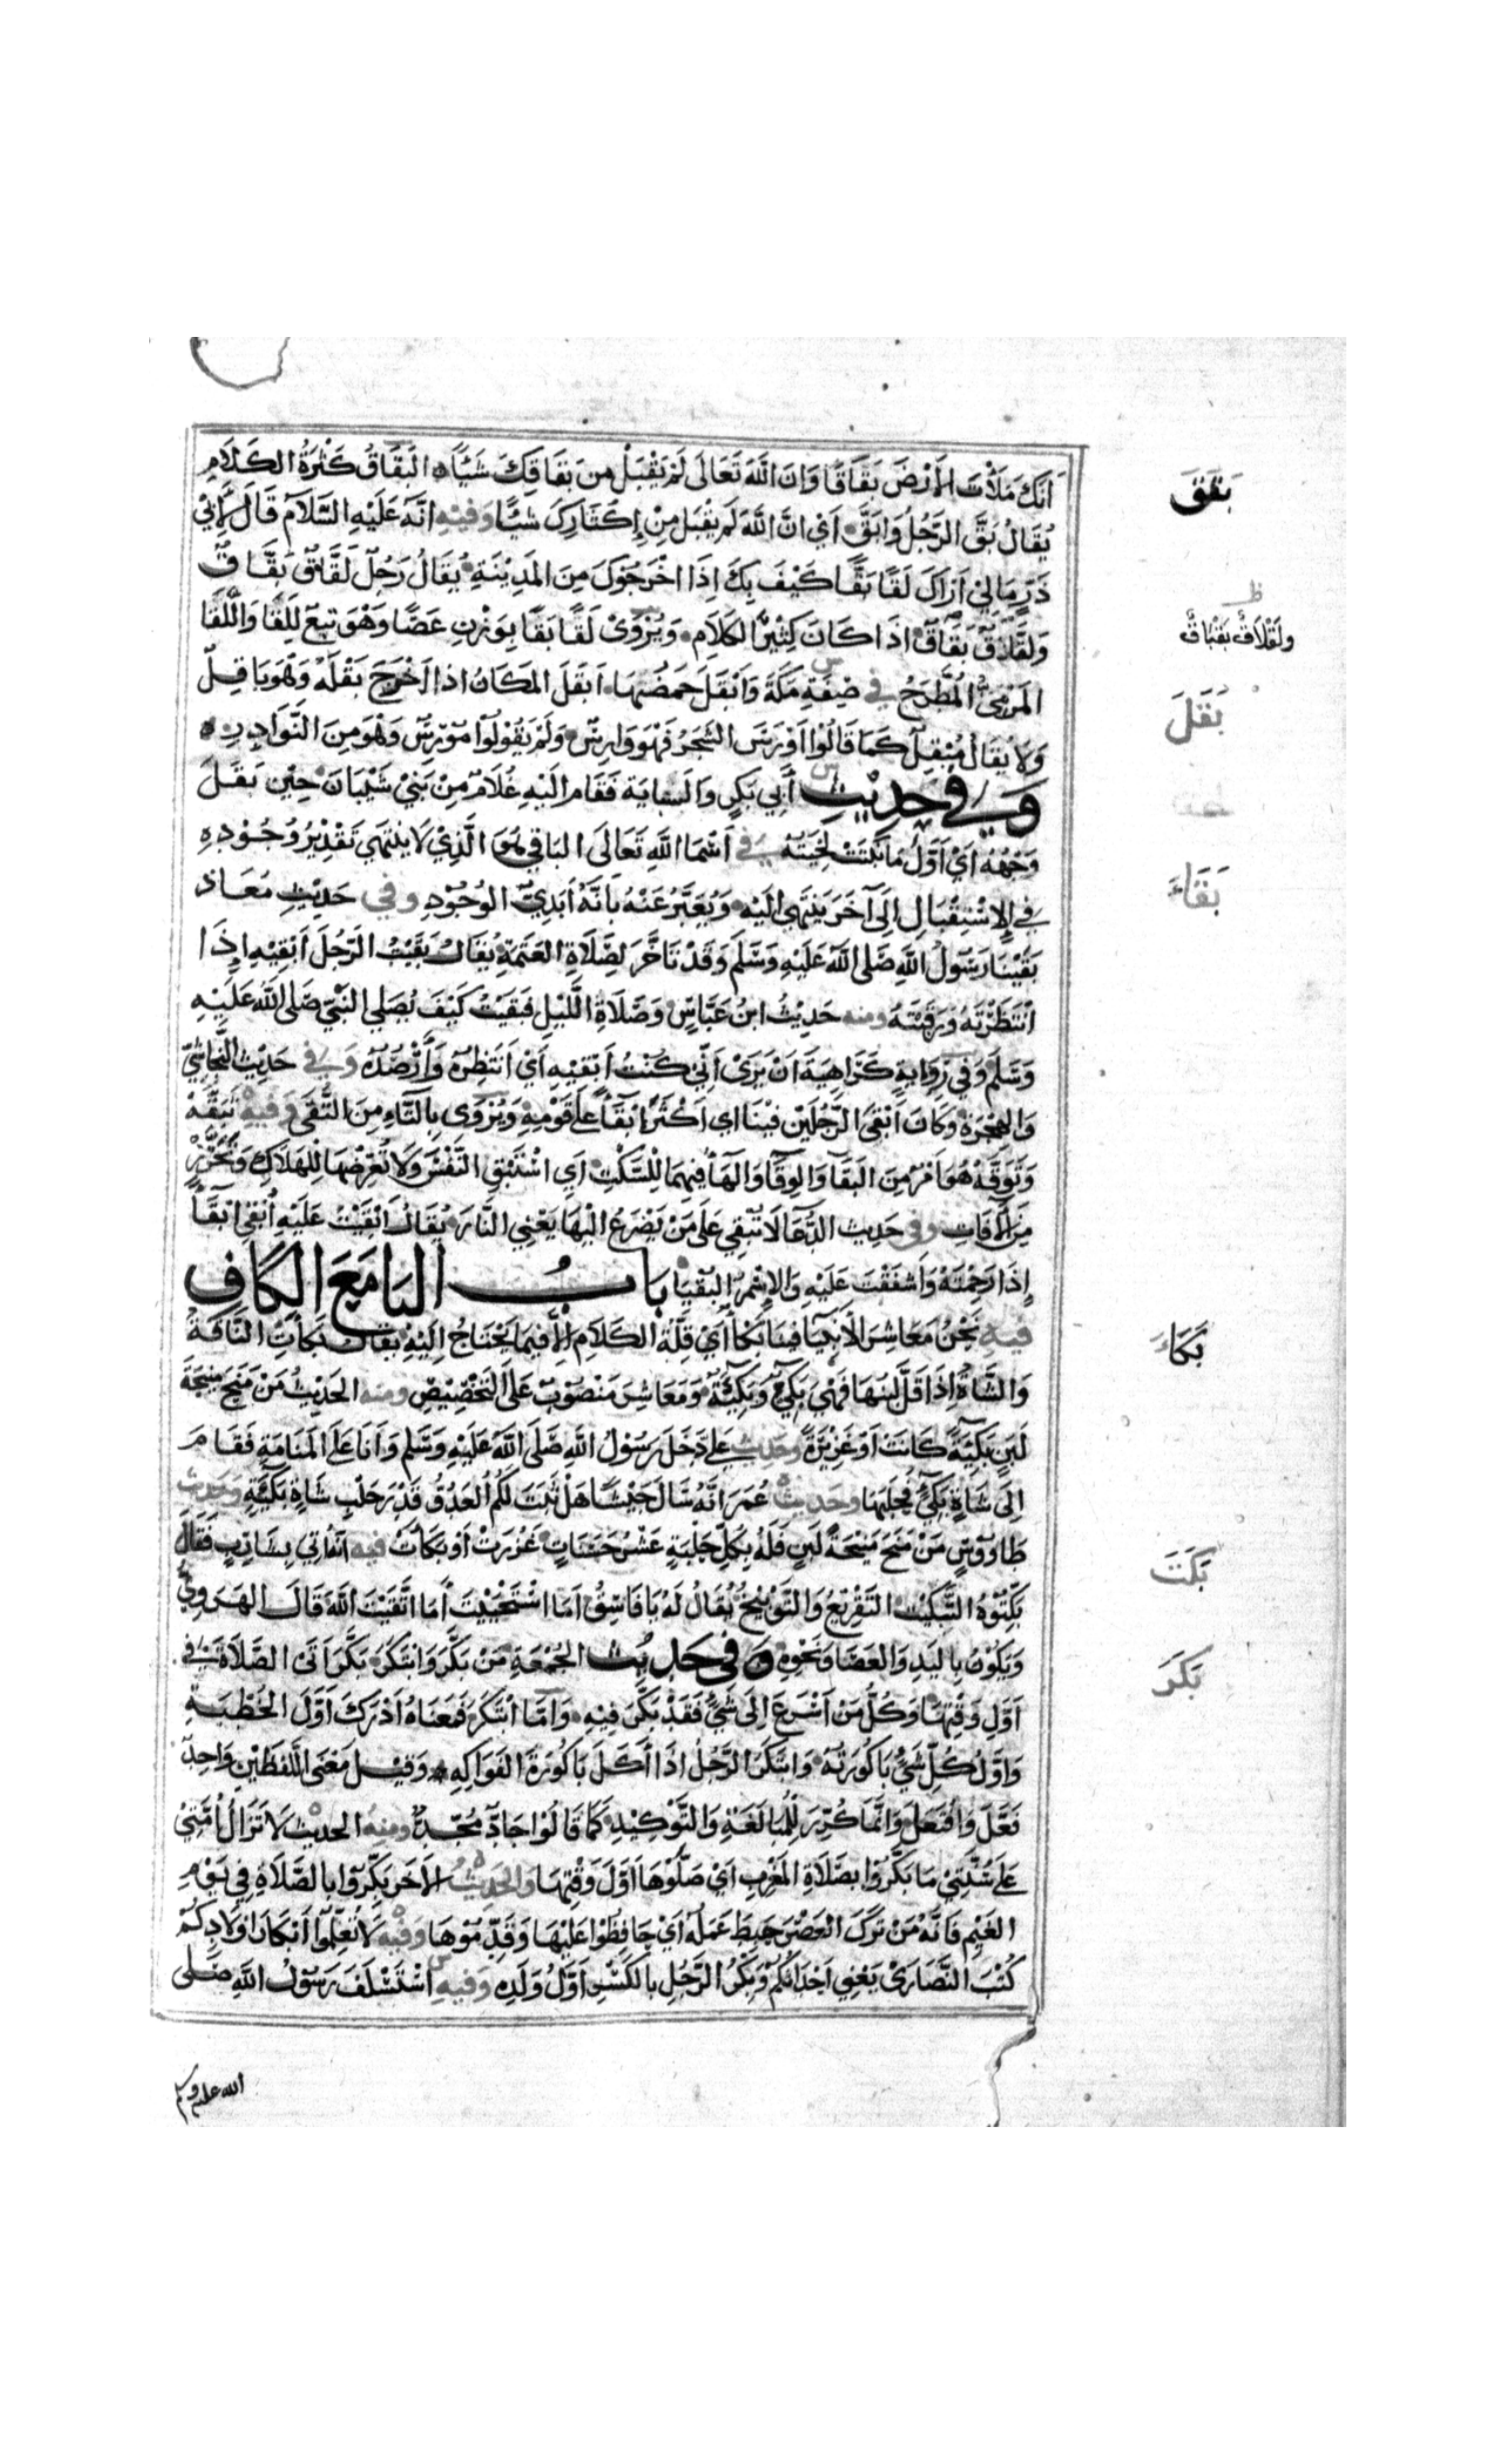 بَقَقَ
أَنَّكَ مَلَأْتَ الأَرْضَ بَقَاقًا وَانَ اللَّهَ تَعَالَى لَمْ يَقْبَلْ مِنْ بَقَاقِكَ شَيْئًا البَقَاقُ كَثْرَةُ الكَلَامِ
يُقَالُ بَقَّ الرَّجُلُ وَابَقَّ اَيْ انَّ اللَّهَ لَمْ يَقْبَلْ مِنْ إِكْثَارِكَ شَيْئًا وَفِيْهِ انَّهُ عَلَيْهِ السَّلَامُ قَالَ لِأَبِيْ
ذَرٍّ مَا لِيْ اَرَاكَ لَقًّا بَقًّا كَيْفَ بِكَ إِذَا اخْرَجُوكَ مِنَ المَدِيْنَةِ يُقَالُ رَجُلٌ لَقَّاقٌ بَقَّاقٌ
ظ
ولَقْلَاقٌ بَقْبَاقٌ
وَلَقَاقٌ بَقَاقٌ اذَا كَانَ كَثِيْرَ الكَلَامِ وَيُرْوَىْ لَقًا بَقًا بِوَزْنِ عَصًا وَهْوَ تَبِعَ لِلَقَا وَاللَّقَا
بَقَلَ
المَرْمِىُّ المُطَّرَحُ في صِفَةِ مَكَّةَ وَاَبْقَلَ حَمْضُهَا اَبْقَلَ المَكَانُ اذا اَخْرَجَ بَقْلَهُ وَهْوَ بَاقِلٌ
وَلَا يُقَالُ مُبْقِلٌ كَمَا قَالُوا اَوْرَسَ الشَّجَرُ فَهْوَ وَارِسٌ وَلَمْ يَقُوْلُوْا مُوْرِسٌ وَهْوَ مِنَ النَّوَادِرِ
وَفِي حَدِيْثِ أَبِي بَكْرٍ وَالنسابَة فَقَامَ الَيْهِ غُلَامٌ مِنْ بَنِيْ شَيْبَانَ حِيْنَ بَقَلَ
وَجْهُهُ اَيْ اَوَّلُ مَا نَبَتَتْ لِحْيَتُهُ في اَسْمَا اللَّهِ تَعَالَى البَاقِي هُوَ الَّذِيْ لَا يَنْتَهِي تَقْدِيْرُ وُجُوْدِهِ
بَقَاءَ
فِي الاِسْتِقْبَالِ إِلَى آخَرَ يَنْتَهِيْ الَيْهِ وَيُعَبَّرُ عَنْهُ بِأَنَّهُ أَبَدِيُّ الوُجُوْدِ وَفِي حَدِيْثِ مُعَاذ
بَقَيْنَا رَسُوْلَ اللَّهِ صَلَّى اللَّهُ عَلَيْهِ وَسَلَّمَ وَقَدْ تَأَخَّرَ لِصَلَاةِ العَتَمَةِ يُقَالُ بَقَيْتُ الرَّجُلَ اَبْقِيْهِ إِذَا
انْتَظَرْتَهُ وَرَقَبْتَهُ ومنه حَدِيْثُ ابْنُ عَبَّاسٍ وَصَلَاةِ اللَّيْلِ فَبَقَيْتُ كَيْفَ يُصَلِّي النَّبِيُّ صَلَّى اللَّهُ عَلَيْهِ
وَسَلَّمَ وَفِي رِوَايَةٍ كَرَاهِيَةَ اَنْ يَرَىْ اَنِّيْ كُنْتُ اَبْقِيْهِ اَيْ اَنْتَظِرُهُ وَأَرْصُدُهُ وَفِي حَدِيْثِ النَّجَاشِيِّ
وَالهِجْرَةِ وَكَانَ اَبْقَى الرَّجُلَيْنِ فِيْنَا اي اَكْثَرَ اِبْقَاً عَلَى قَوْمِهِ وَيُرْوَى بِالتَّاءِ مِنَ التُّقَى وَفِيْهِ تَبَقَّهْ
وَتَوَقَّهْ هُوَ اَمْرٌ مِنَ البَقَا وَالوِقَا وَالهَا فِيْهِمَا لِلسَّكْتِ اَيِ اسْتَبْقِ النَّفْسَ وَلَا تُعَرِّضْهَا لِلْهَلَاكِ وَتَحَرَّزْ
مِنَ الآفَاتِ وفي حَدِيث الدُّعَا لَا تُبْقِي عَلَى مَنْ يَضْرَعُ الَيْهَا يَعْنِي النَّارَ يُقَالُ اَبْقَيْتُ عَلَيْهِ اُبْقِي اِبْقَاً
إِذَا رَحِمْتَهُ وَاَشْفَقْتَ عَلَيْهِ وَالاِسْمُ البُقْيَا بَابُ البَا مَعَ الكَافِ
بَكَاءَ
فِيْهِ نَحْنُ مَعَاشِرَ الأَنْبِيَا فِيْنَا بَكْأٌ أَيْ قِلَّةُ الكَلَامِ اِلَّا فِيْمَا يَحْتَاجُ اِلَيْهِ يُقَالُ بَكَأَتِ النَّاقَةُ
وَالشَّاةُ إِذَا قَلَّ لَبَنُهَا فَهْيَ بَكِيْءٌ وَبَكِيْئَةٌ وَمَعَاشِرَ مَنْصُوْبٌ عَلَى التَّخْصِيْصِ ومنه الحَدِيْثُ مَنْ مَنَحَ مَنِيْحَةَ
لَبَنٍ بَكِيْئَةً كَانَتْ اَوْ غَزِيْرَةً وحَدِيث عَلِي دَخَلَ رَسُوْلُ اللَّهِ صَلَّى اللَّهُ عَلَيْهِ وَسَلَّمَ وَاَنَا عَلَى المَنَامَةِ فَقَامَ
اِلَى شَاةٍ بَكِيْءٍ فَحَلَبَهَا وحَدِيث عُمَرَ اَنَّهُ سَأَلَ جَيْشًا هَلْ ثَبَتَ لَكُمُ العَدُوُّ قَدْرَ حَلْبِ شَاةٍ بَكِيْئَةٍ وحَدِيث
طَاوُوْسٍ مَنْ مَنَحَ مَنِيْحَةَ لَبَنٍ فَلَهُ بِكُلِّ حَلْبَةٍ عَشْرُ حَسَنَاتٍ غَزُرَتْ اَوْ بَكَأَتْ فيه اَنَّهُ اُتِيَ بِشَارِبٍ فَقَالَ
بَكَتَ
بَكِّتُوْهُ التَّبْكِيْتُ التَّقْرِيْعُ وَالتَّوْبِيْخُ يُقَالُ لَهُ يَا فَاسِقُ اَمَا اسْتَحْيَيْتَ أَمَا اتَّقَيْتَ اللَّهَ قَالَ الهَرَوِيُّ
بَكَرَ
وَيَكُوْنُ بِاليَدِ وَالعَصَا وَنَحْوِهِ وَفِي حَدِيْثِ الجُمُعَةِ مَنْ بَكَّرَ وَابْتَكَرَ بَكَّرَ اَتَى الصَّلَاةَ فِي
اَوَّلِ وَقْتِهَا وَكُلُّ مَنْ اَسْرَعَ اِلَى شَيْءٍ فَقَدْ بَكَّرَ فِيْهِ وَاَمَّا ابْتَكَرَ فَمَعْنَاهُ اَدْرَكَ اَوَّلَ الخُطْبَةِ
وَاَوَّلُ كُلِّ شَيْءٍ بَاكُوْرَتُهُ وَابْتَكَرَ الرَّجُلُ اذَا أَكَلَ بَاكُوْرَةَ الفَوَاكِهِ وَقِيْلَ مَعْنَى اللَّفْظَيْنِ وَاحِدٌ
فَعَّلَ وَافْتَعَلَ وَانَّمَا كُرِّرَ لِلْمُبَالَغَةِ وَالتَّوْكِيْدِ كَمَا قَالُوْا جَادٌّ مُجِدٌّ ومِنه الحديث لَا تَزَالُ اُمَّتِيْ
عَلَى سُنَّتِيْ مَا بَكَّرُوْا بِصَلَاةِ المَغْرِبِ اَيْ صَلَّوْهَا اَوَّلَ وَقْتِهَا وَالحَدِيْثُ الآخَرُ بَكِّرُوْا بِالصَّلَاةِ فِي يَوْمِ
الغَيْمِ فَاِنَّهُ مَنْ تَرَكَ العَصْرَ حَبِطَ عَمَلُهُ اَيْ حَافِظُوْا عَلَيْهَا وَقَدِّمُوْهَا وَفِيْهِ لَا تُعَلِّمُوْا اَبْكَارَ اَوْلَادِكُمْ
كُتُبَ النَّصَارَىْ يَعْنِي اَحْدَاثَكُمْ وَبِكْرُ الرَّجُلِ بِالكَسْرِ اَوَّلُ وَلَدِهِ وَفِيهِ اسْتَسْلَفَ رَسُوْلُ اللَّهِ صَلَّى
الله عليه وسلم